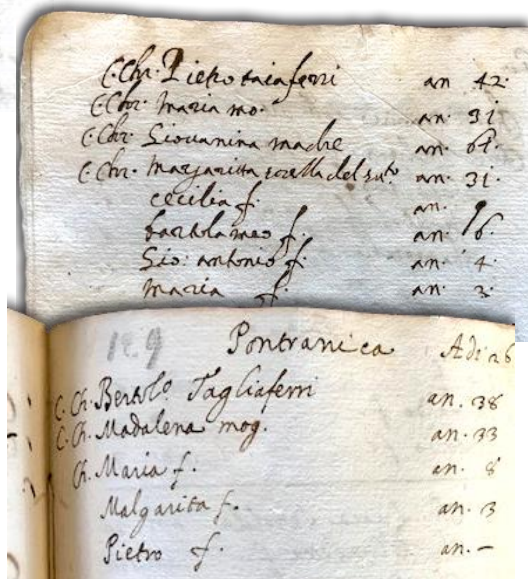 C. Chr. Pietro taiaferri an 42
C. Chr. Maria mo. an. 31
C. Chr. Giovanina madre an. 61.
C. Chr. Margaritta sorella del sut.o an. 31.
cecilia f. an. 9
bartolameo f. an. 6.
Gio: antonio f. an. 4.
maria f. an. 3.
Pontranica Adi 26
C. Ch. Bertolo Tagliaferri an. 38
C. Ch. Madalena mog. an. 33
Ch. Maria f. an. 8
Malgarita f. an. 3
Pietro f. an. –